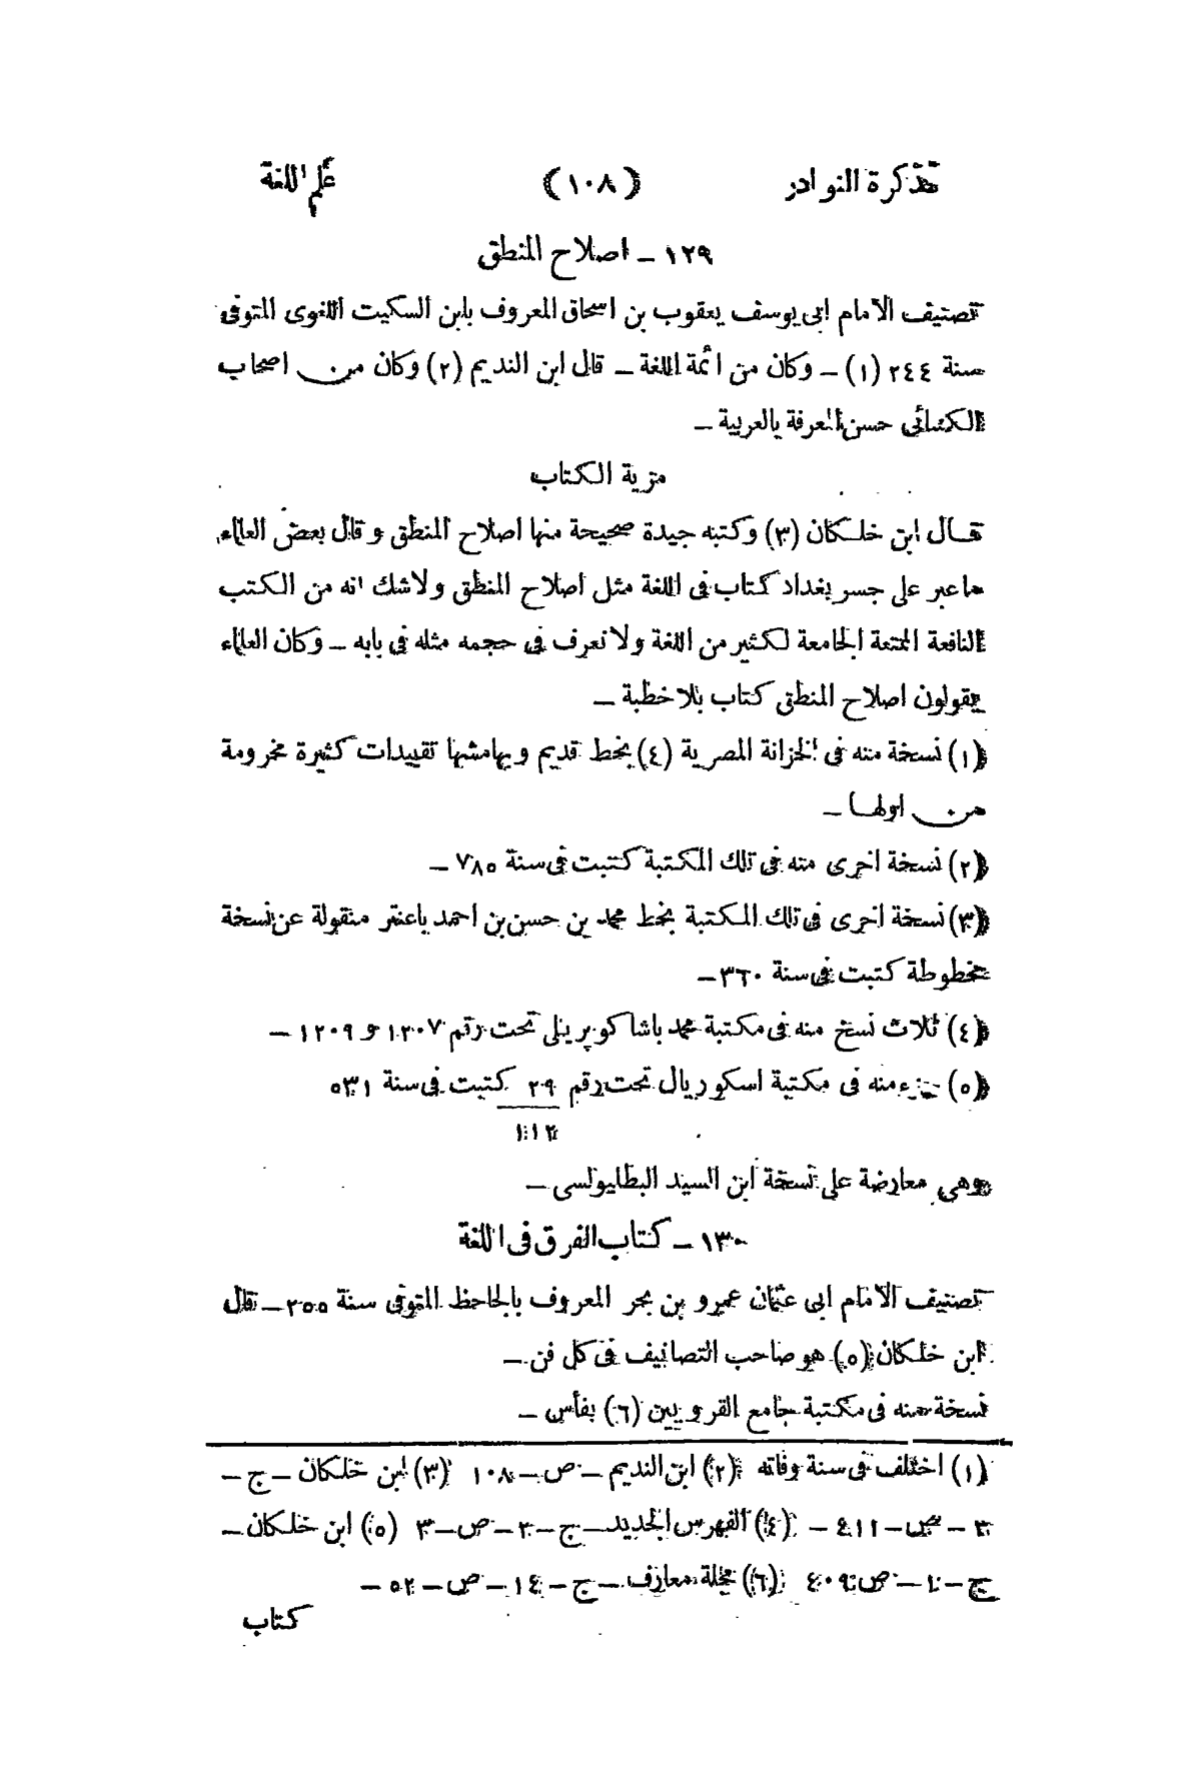 تذكرة النوادر (١٠٨) علم اللغة
١٢٩ – اصلاح المنطق
تصنيف الامام ابى يوسف يعقوب بن اسحاق المعروف بابن السكيت اللغوى المتوفى
سنة ٢٤٤ (١) – وكان من ائمة اللغة – قال ابن النديم (٢) وكان من اصحاب
الكسائى حسن المعرفة بالعربية –
مزية الكتاب
قال ابن خلكان (٣) وكتبه جيدة صحيحة منها اصلاح المنطق و قال بعض العلماء
ما عبر على جسر بغداد كتاب فى اللغة مثل اصلاح المنطق ولا شك انه من الكتب
النافعة الممتعة الجامعة لكثير من اللغة ولا نعرف فى حجمه مثله فى بابه – وكان العلماء
يقولون اصلاح المنطق كتاب بلا خطبة –
(١) نسخة منه فى الخزانة المصرية (٤) بخط قديم وبهامشها تقييدات كثيرة مخرومة
من اولها –
(٢) نسخة اخرى منه فى تلك المكتبة كتبت فى سنة ٧٨٥ –
(٣) نسخة اخرى فى تلك المكتبة بخط محمد بن حسن بن احمد باعنتر منقولة عن نسخة
مخطوطة كتبت فى سنة ٣٦٠ –
(٤) ثلاث نسخ منه فى مكتبة محمد باشا كوپريلى تحت رقم ١٢٠٧ و ١٢٠٩ –
(٥) جزء منه فى مكتبة اسكوريال تحت رقم ٢٩ كتبت فى سنة ٥٣١
١١٢
وهى معارضة على نسخة ابن السيد البطليولسى –
١٣٠ – كتاب الفرق فى اللغة
تصنيف الامام ابى عثمان عمرو بن بحر المعروف بالجاحظ المتوفى سنة ٢٥٥ – قال
ابن خلكان (٥) هو صاحب التصانيف فى كل فن –
نسخة منه فى مكتبة جامع القرويين (٦) بفأس –
(١) اختلف فى سنة وفاته (٢) ابن النديم – ص – ١٠٨ (٣) ابن خلكان – ج –
٣ – ص – ٤١١ – (٤) الفهرس الجديد – ج – ٢ – ص – ٣ (٥) ابن خلكان –
ج – ١ – ص ٤٠٩ (٦) مجلة معارف – ج – ١٤ – ص – ٥٢ –
كتاب